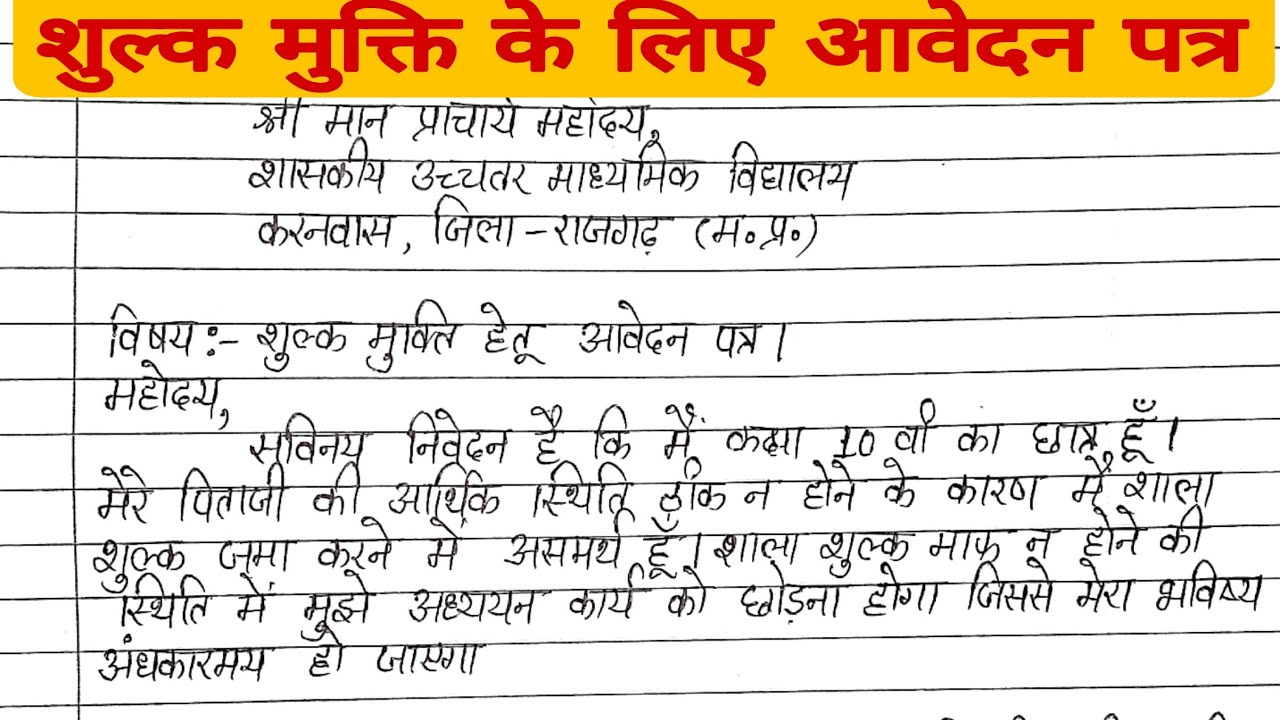 शुल्क मुक्ति के लिए आवेदन पत्र
श्री मान प्राचार्य महोदय,
शासकीय उच्चतर माध्यमिक विद्यालय
करनवास, जिला - राजगढ़ (म०प्र०)
विषय :- शुल्क मुक्ति हेतू आवेदन पत्र ।
महोदय,
सविनय निवेदन है कि मैं कक्षा 10 वीं का छात्र हूँ ।
मेरे पिताजी की आर्थिक स्थिति ठीक न होने के कारण में शाला
शुल्क जमा करने में असमर्थ हूँ । शाला शुल्क माफ न होने की
स्थिति में मुझे अध्ययन कार्य को छोड़ना होगा जिससे मेरा भविष्य
अंधकारमय हो जाएगा